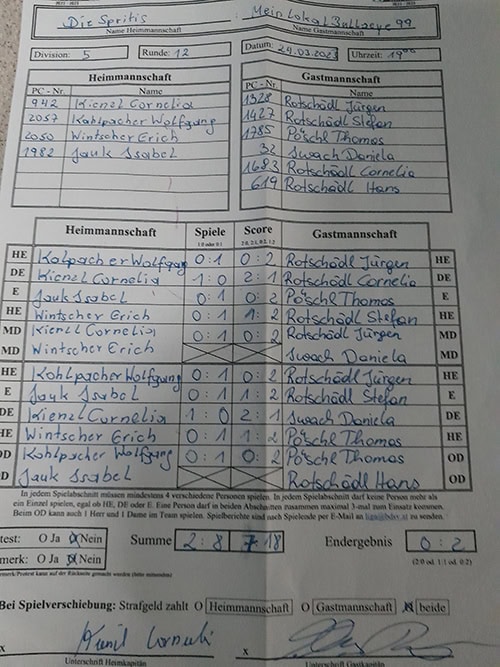 Die Spritis : Mein Lokal Bullseye 99
Name Heimmannschaft Name Gastmannschaft
Division: 5 Runde: 12 Datum: 29.03.2023 Uhrzeit: 19°°
Heimmannschaft Gastmannschaft
PC - Nr. Name PC - Nr. Name
942 Kienzl Cornelia 1328 Rotschädl Jürgen
2057 Kohlpacher Wolfgang 1427 Rotschädl Stefan
2050 Wintscher Erich 1785 Pöschl Thomas
1982 Jauk Isabel 32 Swach Daniela
1683 Rotschädl Cornelia
619 Rotschädl Hans
Heimmannschaft Spiele Score Gastmannschaft
1:0 oder 0:1 2:0, 2:1, 0:2, 1:2
HE Kolpacher Wolfgang 0:1 0:2 Rotschädl Jürgen HE
DE Kienzl Cornelia 1:0 2:1 Rotschädl Cornelia DE
E Jauk Isabel 0:1 0:2 Pöschl Thomas E
HE Wintscher Erich 0:1 1:2 Rotschädl Stefan HE
MD Kienzl Cornelia 0:1 0:2 Rotschädl Jürgen MD
MD Wintscher Erich Swach Daniela MD
HE Kohlpacher Wolfgang 0:1 0:2 Rotschädl Jürgen HE
E Jauk Isabel 0:1 1:2 Rotschädl Stefan E
DE Kienzl Cornelia 1:0 2:1 Swach Daniela DE
HE Wintscher Erich 0:1 1:2 Pöschl Thomas HE
OD Kohlpacher Wolfgang 0:1 0:2 Pöschl Thomas OD
OD Jauk Isabel Rotschädl Hans OD
In jedem Spielabschnitt müssen mindestens 4 verschiedene Personen spielen. In jedem Spielabschnitt darf keine Person mehr als
ein Einzel spielen, egal ob HE, DE oder E. Eine Person darf in beiden Abschnitten zusammen maximal 3-mal zum Einsatz kommen.
Beim OD kann auch 1 Herr und 1 Dame im Team spielen. Spielberichte sind nach Spielende per E-Mail an liga@bdsv.at zu senden.
test: O Ja O Nein Summe 2:8 7:18 Endergebnis 0:2
merk: O Ja O Nein (2:0 od. 1:1 od. 0:2)
merk/Protest kann auf der Rückseite gemacht werden (bitte ankreuzen)
Bei Spielverschiebung: Strafgeld zahlt O Heimmannschaft O Gastmannschaft O beide
x x
Unterschrift Heimkapitän Unterschrift Gastkapitän